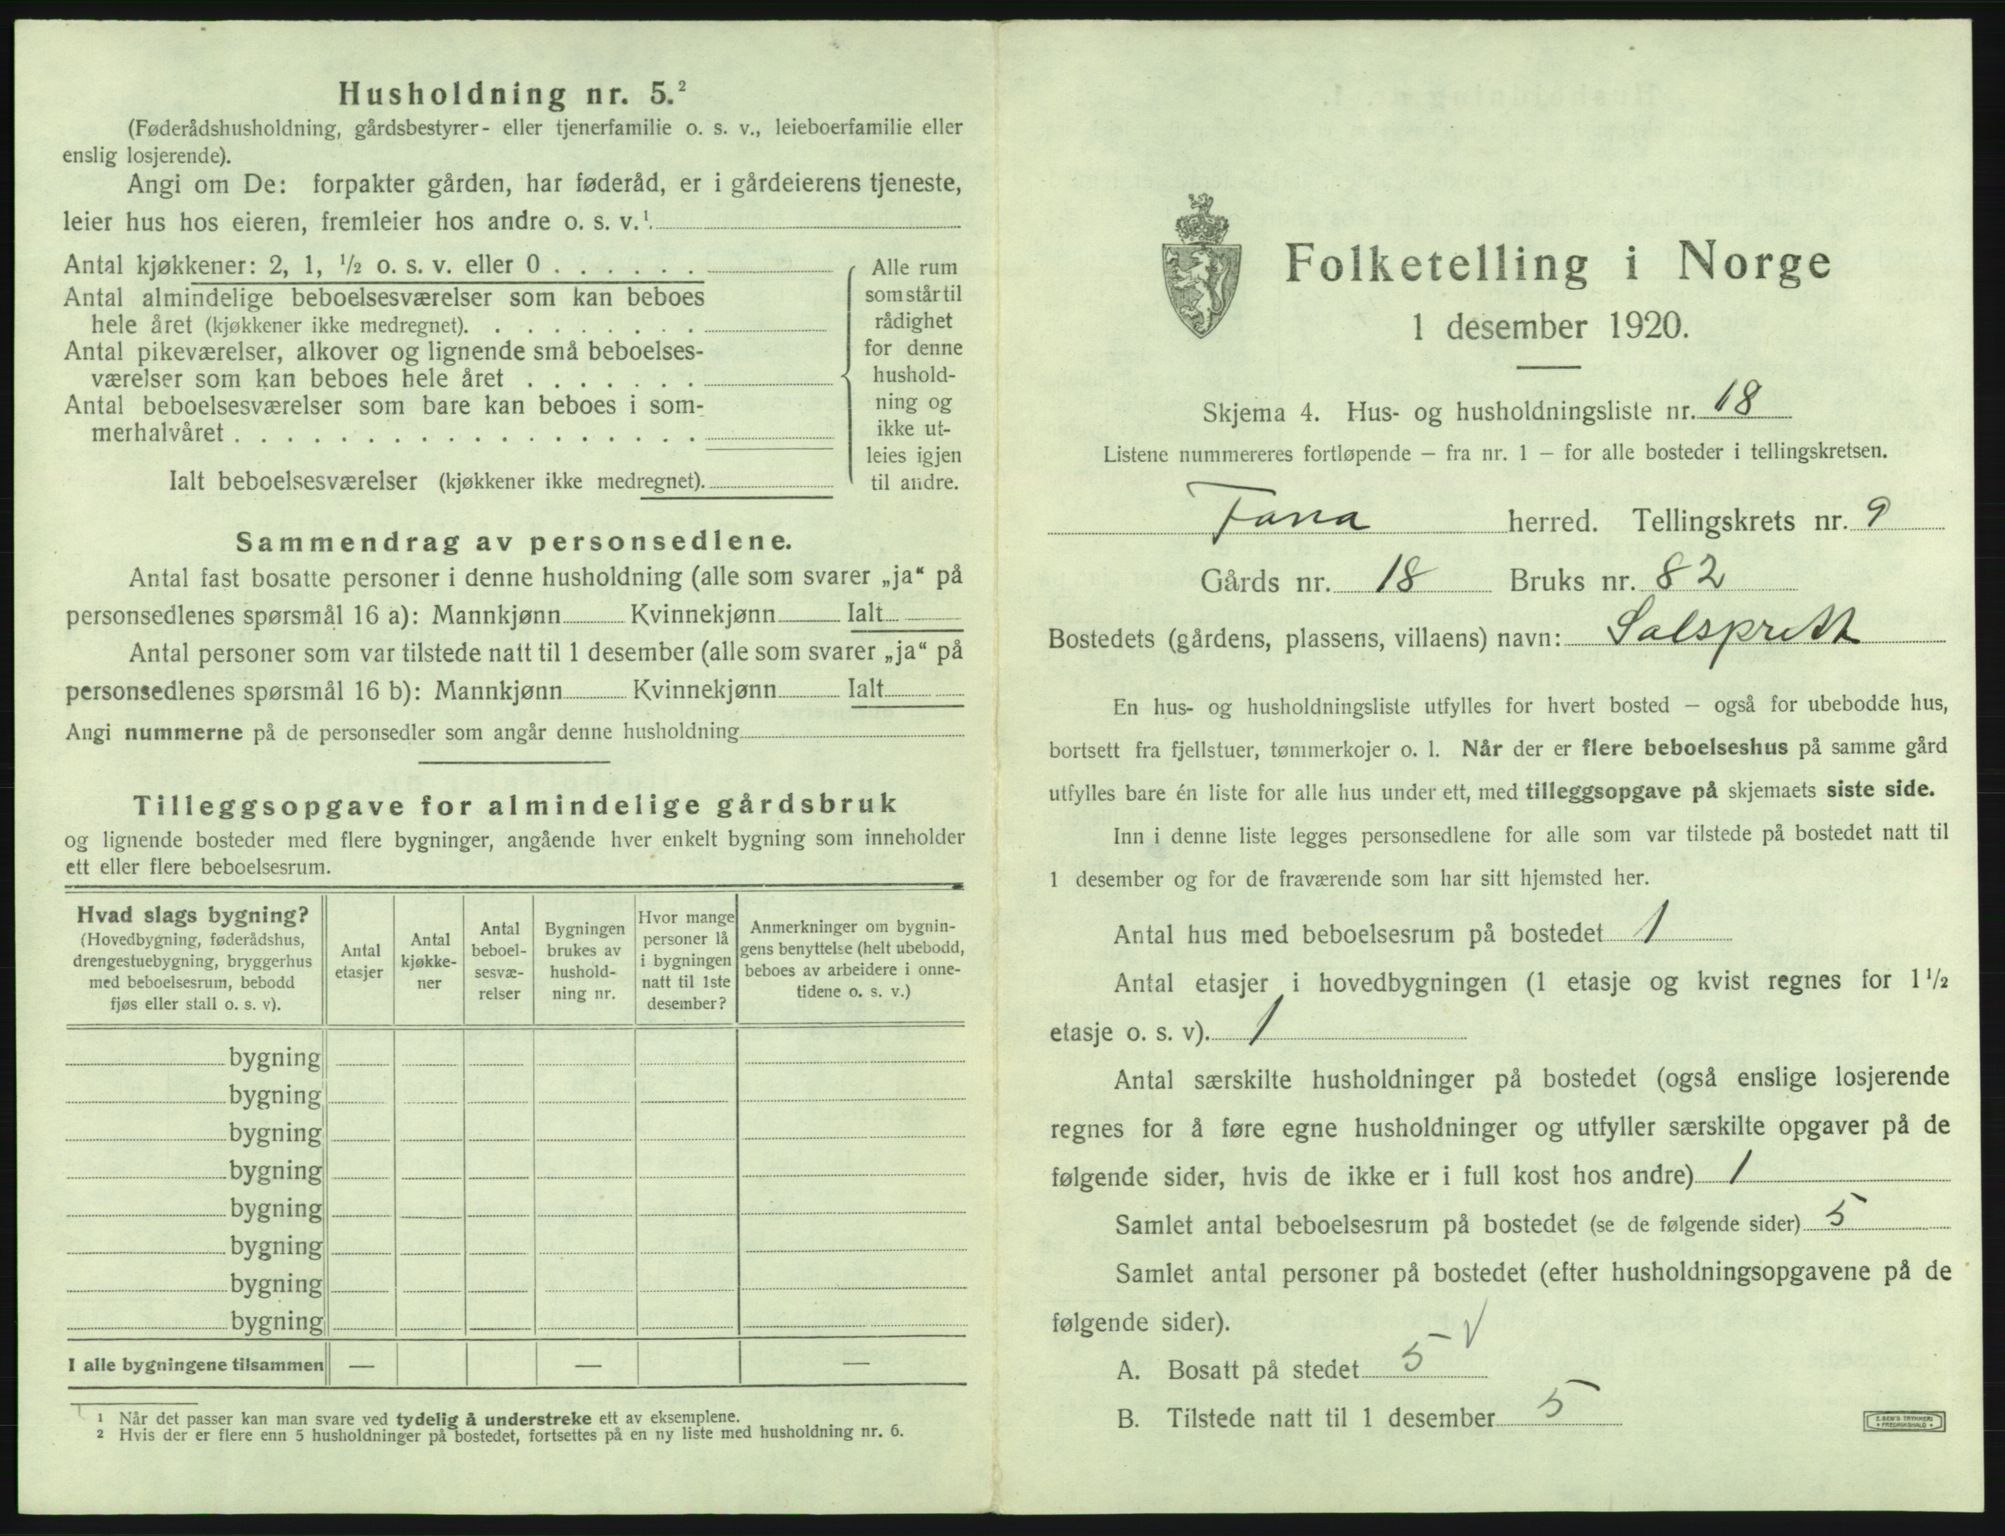 Husholdning nr. 5.²
(Føderådshusholdning, gårdsbestyrer- eller tjenerfamilie o. s. v., leieboerfamilie eller
enslig losjerende).
Angi om De: forpakter gården, har føderåd, er i gårdeierens tjeneste,
leier hus hos eieren, fremleier hos andre o. s. v.¹
Antal kjøkkener: 2, 1, ½ o. s. v. eller 0 . . . . . .
Antal almindelige beboelsesværelser som kan beboes
hele året (kjøkkener ikke medregnet). . . . . . . . .
Antal pikeværelser, alkover og lignende små beboelses-
værelser som kan beboes hele året . . . . . . .
Antal beboelsesværelser som bare kan beboes i som-
merhalvåret . . . . . . . . . . . . . . . . . .
Ialt beboelsesværelser (kjøkkener ikke medregnet).
Alle rum
som står til
rådighet
for denne
hushold-
ning og
ikke ut-
leies igjen
til andre.
Sammendrag av personsedlene.
Antal fast bosatte personer i denne husholdning (alle som svarer „ja“ på
personsedlenes spørsmål 16 a): Mannkjønn Kvinnekjønn Ialt
Antal personer som var tilstede natt til 1 desember (alle som svarer „ja“ på
personsedlenes spørsmål 16 b): Mannkjønn Kvinnekjønn Ialt
Angi nummerne på de personsedler som angår denne husholdning
Tilleggsopgave for almindelige gårdsbruk
og lignende bosteder med flere bygninger, angående hver enkelt bygning som inneholder
ett eller flere beboelsesrum.
Hvad slags bygning?
(Hovedbygning, føderådshus,
drengestuebygning, bryggerhus
med beboelsesrum, bebodd
fjøs eller stall o. s. v).
Antal
etasjer
Antal
kjøkke-
ner
Antal
beboel-
sesvæ-
relser
Bygningen
brukes av
hushold-
ning nr.
Hvor mange
personer lå
i bygningen
natt til 1ste
desember?
Anmerkninger om bygnin-
gens benyttelse (helt ubebodd,
beboes av arbeidere i onne-
tidene o. s. v.)
bygning
bygning
bygning
bygning
bygning
bygning
bygning
bygning
I alle bygningene tilsammen — — —
¹ Når det passer kan man svare ved tydelig å understreke ett av eksemplene.
² Hvis der er flere enn 5 husholdninger på bostedet, fortsettes på en ny liste med husholdning nr. 6.
Folketelling i Norge
1 desember 1920.
Skjema 4. Hus- og husholdningsliste nr. 18
Listene nummereres fortløpende – fra nr. 1 – for alle bosteder i tellingskretsen.
Fana herred. Tellingskrets nr. 9
Gårds nr. 18 Bruks nr. 82
Bostedets (gårdens, plassens, villaens) navn: Solsprett
En hus- og husholdningsliste utfylles for hvert bosted – også for ubebodde hus,
bortsett fra fjellstuer, tømmerkojer o. l. Når der er flere beboelseshus på samme gård
utfylles bare én liste for alle hus under ett, med tilleggsopgave på skjemaets siste side.
Inn i denne liste legges personsedlene for alle som var tilstede på bostedet natt til
1 desember og for de fraværende som har sitt hjemsted her.
Antal hus med beboelsesrum på bostedet 1
Antal etasjer i hovedbygningen (1 etasje og kvist regnes for 1½
etasje o. s. v). 1
Antal særskilte husholdninger på bostedet (også enslige losjerende
regnes for å føre egne husholdninger og utfyller særskilte opgaver på de
følgende sider, hvis de ikke er i full kost hos andre) 1
Samlet antal beboelsesrum på bostedet (se de følgende sider) 5
Samlet antal personer på bostedet (efter husholdningsopgavene på de
følgende sider).
A. Bosatt på stedet 5 V
B. Tilstede natt til 1 desember 5